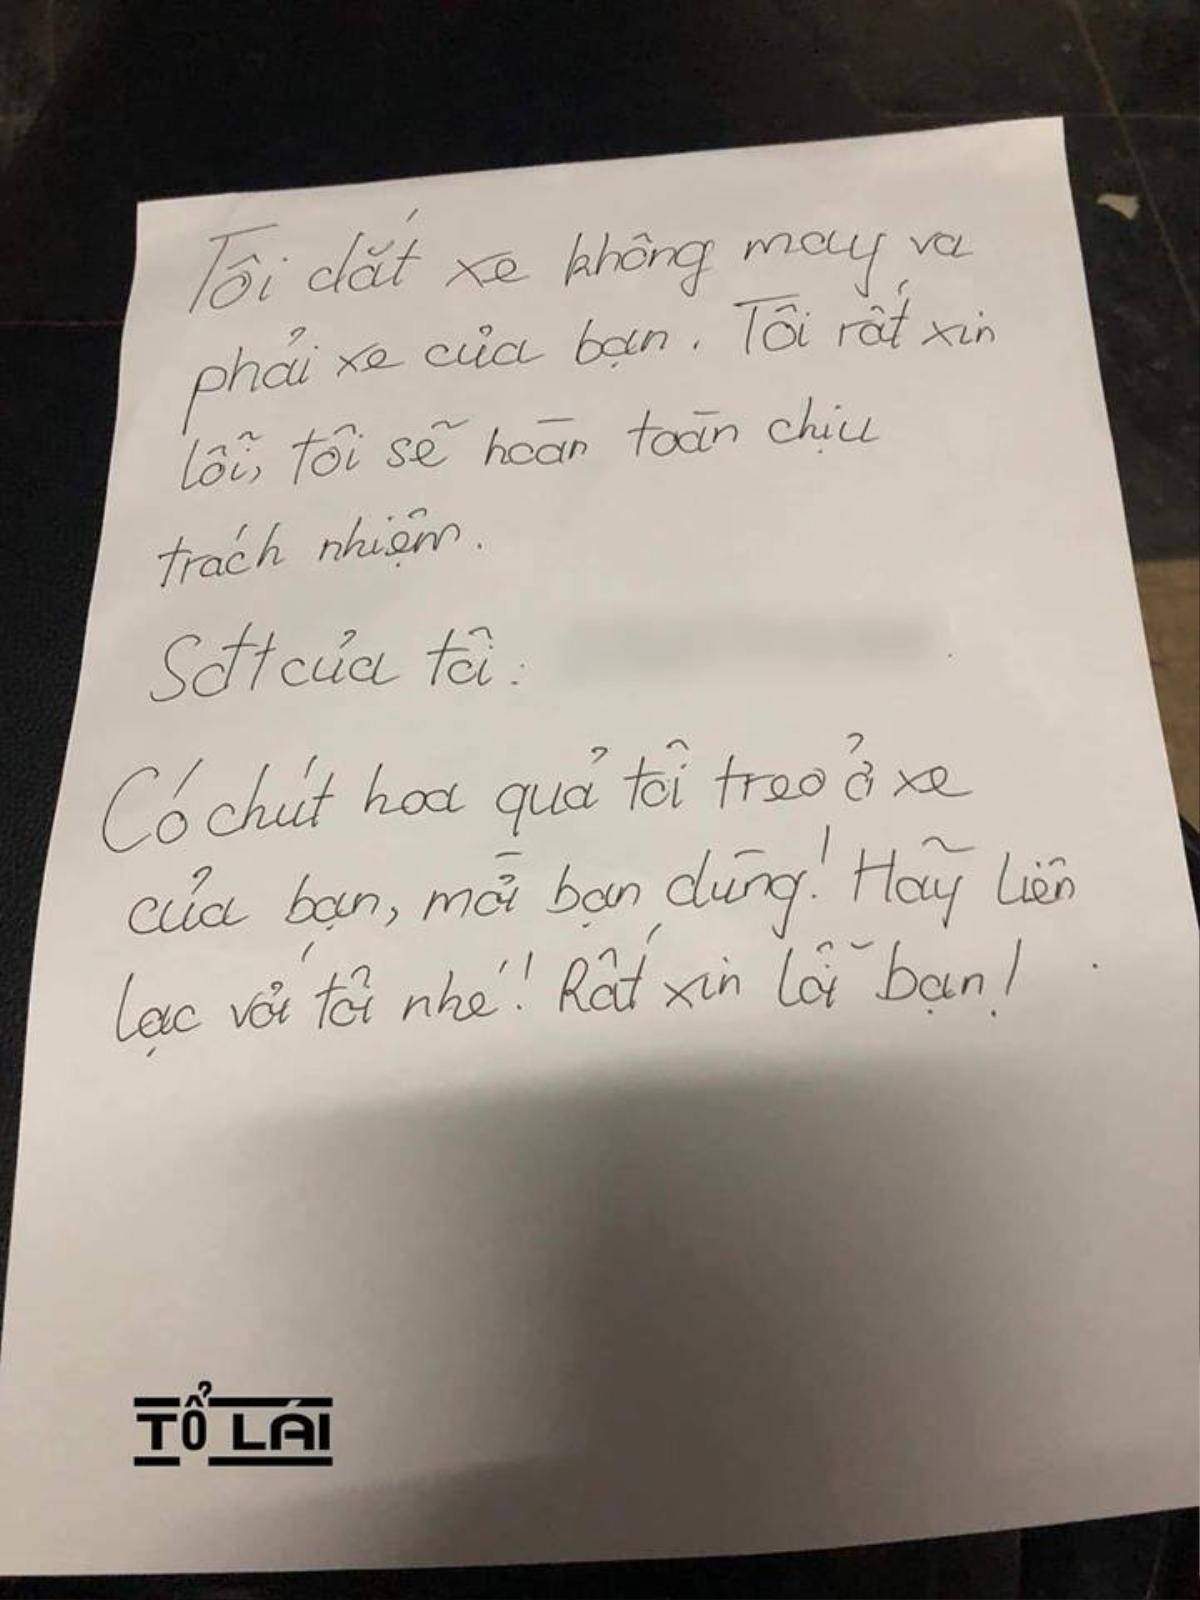 Tôi dắt xe không may va
phải xe của bạn. Tôi rất xin
lỗi, tôi sẽ hoàn toàn chịu
trách nhiệm.
Sđt của tôi:
Có chút hoa quả tôi treo ở xe
của bạn, mời bạn dùng! Hãy liên
lạc với tôi nhé! Rất xin lỗi bạn!
TỔ LÁI